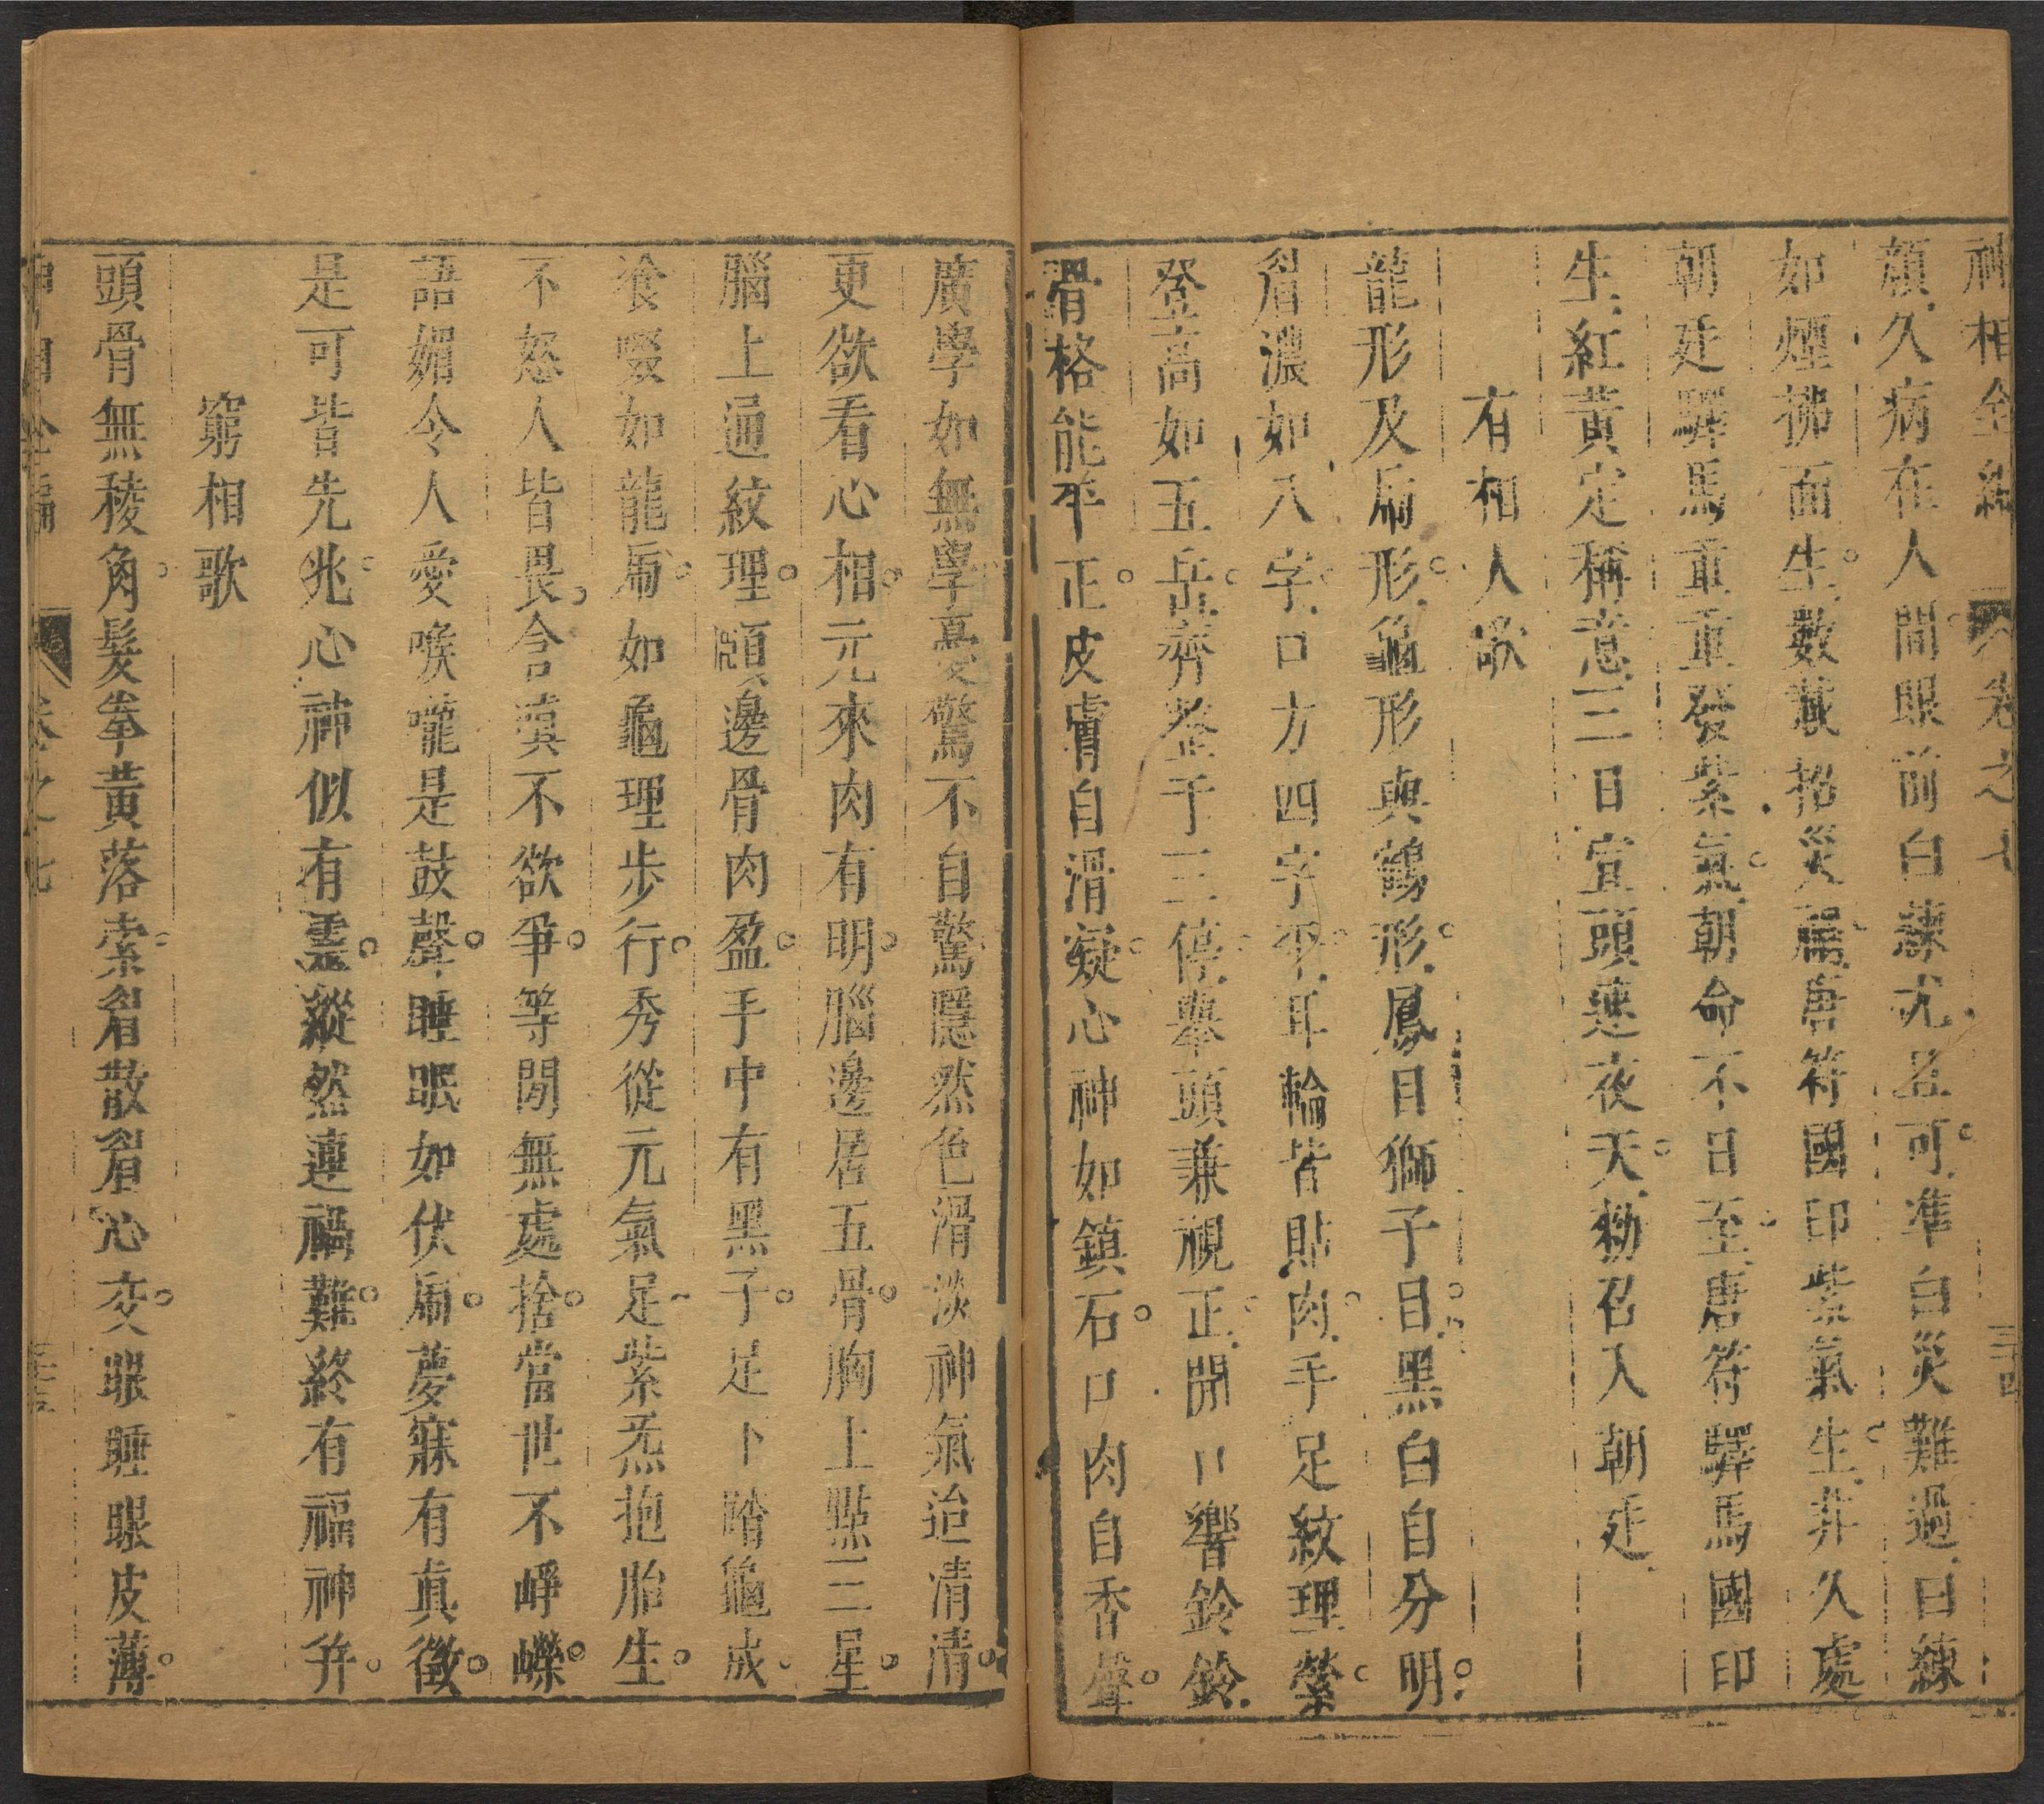 神相全編 卷之七 三十四
顏久病在人間眼前白練尤且可準白災難過日練
如煙拂面生數載招災屬唐符國印紫氣生并久處
朝廷驛馬重重發紫氣朝命不日至唐符驛馬國印
生紅黃定稱意三日宣頭連夜天勑召入朝廷
有相人歌
龍形及扁形龜形與鶴形鳳目獅子目黑白自分明
眉濃如八字口方四字平耳輪皆貼肉手足紋理縈
登高如五岳齊並于三停舉頭兼視正開口響鈴鈴
骨格能平正皮膚自滑凝心神如鎮石口肉自香聲
廣學如無學憂驚不自驚隱然色滑淡神氣迨凊清
更欲看心相元來肉有明腦邊居五骨胸上點三星
腦上通紋理頤邊骨肉盈手中有黑子足卜踏龜成
飡啜如龍扁如龜理步行秀從元氣足紫炁抱胎生
不怒人皆畏含嗔不欲爭等閒無處捨當世不崢嶸
語媚令人愛喉嚨是鼓聲睡眠如伏扁夢寐有真徵
是可皆先兆心神似有灵縱然連禍難終有福神并
窮相歌
頭骨無稜角髮拳黃落索眉散眉心交眼睡眼皮薄
神相全編 卷之七 三十五